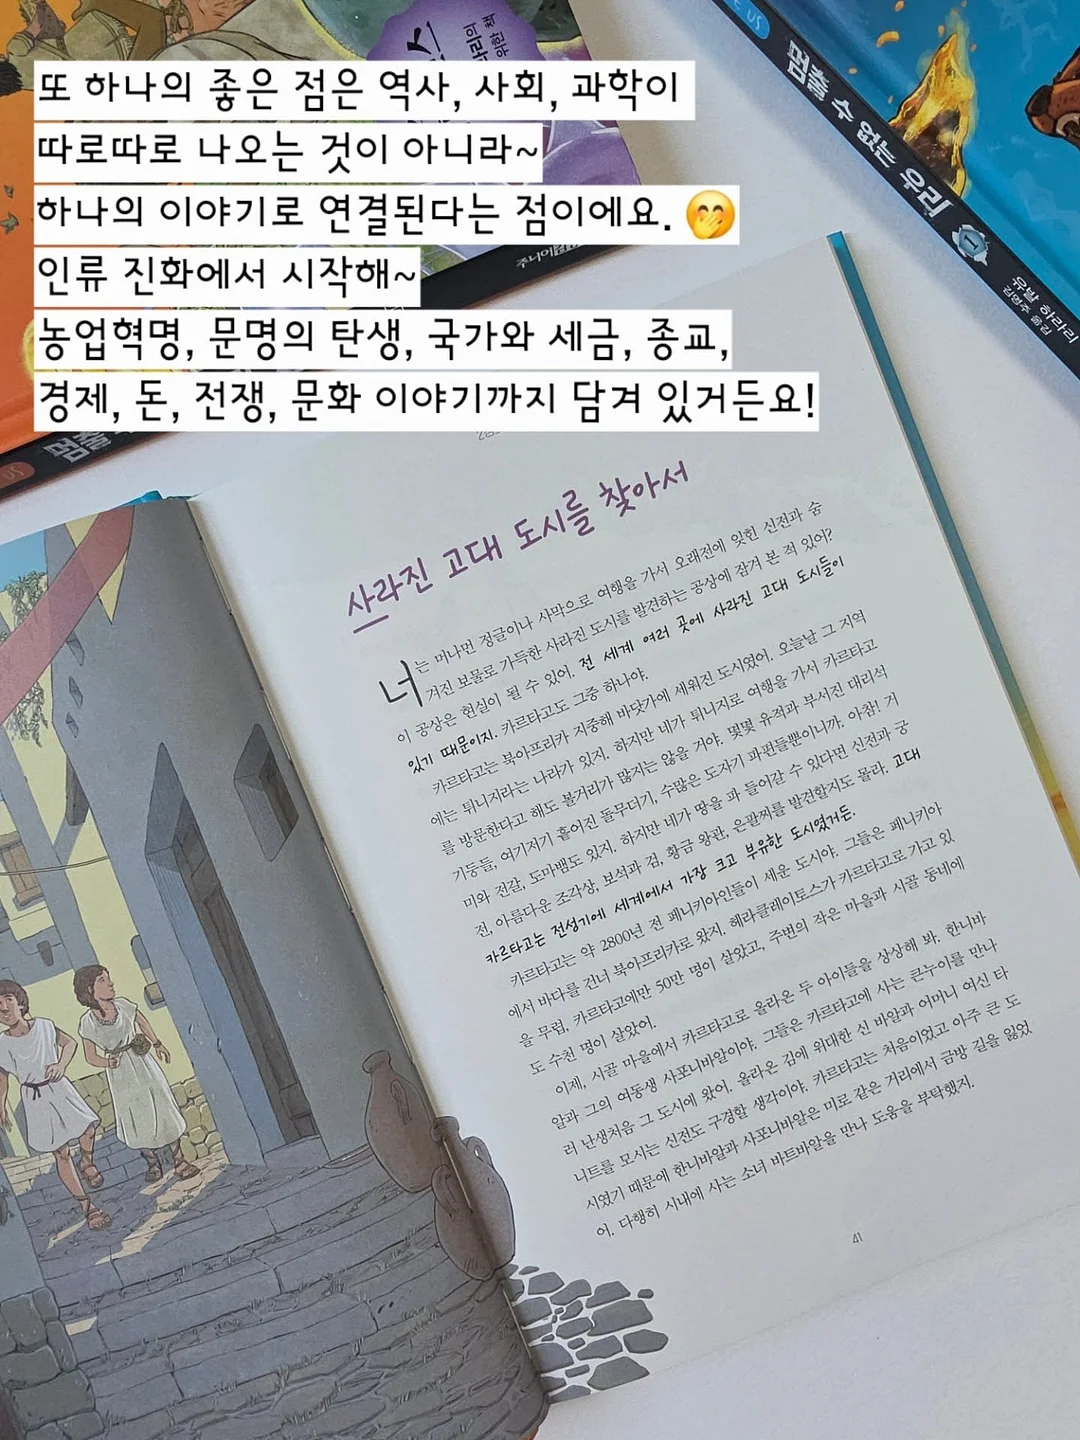 또 하나의 좋은 점은 역사, 사회, 과학이
따로따로 나오는 것이 아니라~
하나의 이야기로 연결된다는 점이에요. 🤭
인류 진화에서 시작해~
농업혁명, 문명의 탄생, 국가와 세금, 종교,
경제, 돈, 전쟁, 문화 이야기까지 담겨 있거든요!
위한 책
주니어김영사
US
멈출 수 없는 우리
1
유발 하라리
US
멈출
사라진 고대 도시를 찾아서
너는 머나먼 정글이나 사막으로 여행을 가서 오래전에 잊힌 신전과 숨
겨진 보물로 가득한 사라진 도시를 발견하는 공상에 잠겨 본 적 있어?
이 공상은 현실이 될 수 있어. 전 세계 여러 곳에 사라진 고대 도시들이
있기 때문이지. 카르타고도 그중 하나야.
카르타고는 북아프리카 지중해 바닷가에 세워진 도시였어. 오늘날 그 지역
에는 튀니지라는 나라가 있지. 하지만 네가 튀니지로 여행을 가서 카르타고
를 방문한다고 해도 볼거리가 많지는 않을 거야. 몇몇 유적과 부서진 대리석
기둥들, 여기저기 흩어진 돌무더기, 수많은 도자기 파편들뿐이니까. 아참! 거
미와 전갈, 도마뱀도 있지. 하지만 네가 땅을 파 들어갈 수 있다면 신전과 궁
전, 아름다운 조각상, 보석과 검, 황금 왕관, 은팔찌를 발견할지도 몰라. 고대
카르타고는 전성기에 세계에서 가장 크고 부유한 도시였거든.
카르타고는 약 2800년 전 페니키아인들이 세운 도시야. 그들은 페니키아
에서 바다를 건너 북아프리카로 왔지. 헤라클레이토스가 카르타고로 가고 있
을 무렵, 카르타고에만 50만 명이 살았고, 주변의 작은 마을과 시골 동네에
도 수천 명이 살았어.
이제, 시골 마을에서 카르타고로 올라온 두 아이들을 상상해 봐. 한니바
알과 그의 여동생 사포니바알이야. 그들은 카르타고에 사는 큰누이를 만나
러 난생처음 그 도시에 왔어. 올라온 김에 위대한 신 바알과 어머니 여신 타
니트를 모시는 신전도 구경할 생각이야. 카르타고는 처음이었고 아주 큰 도
시였기 때문에 한니바알과 사포니바알은 미로 같은 거리에서 금방 길을 잃었
어. 다행히 시내에 사는 소녀 바트바알을 만나 도움을 부탁했지.
41